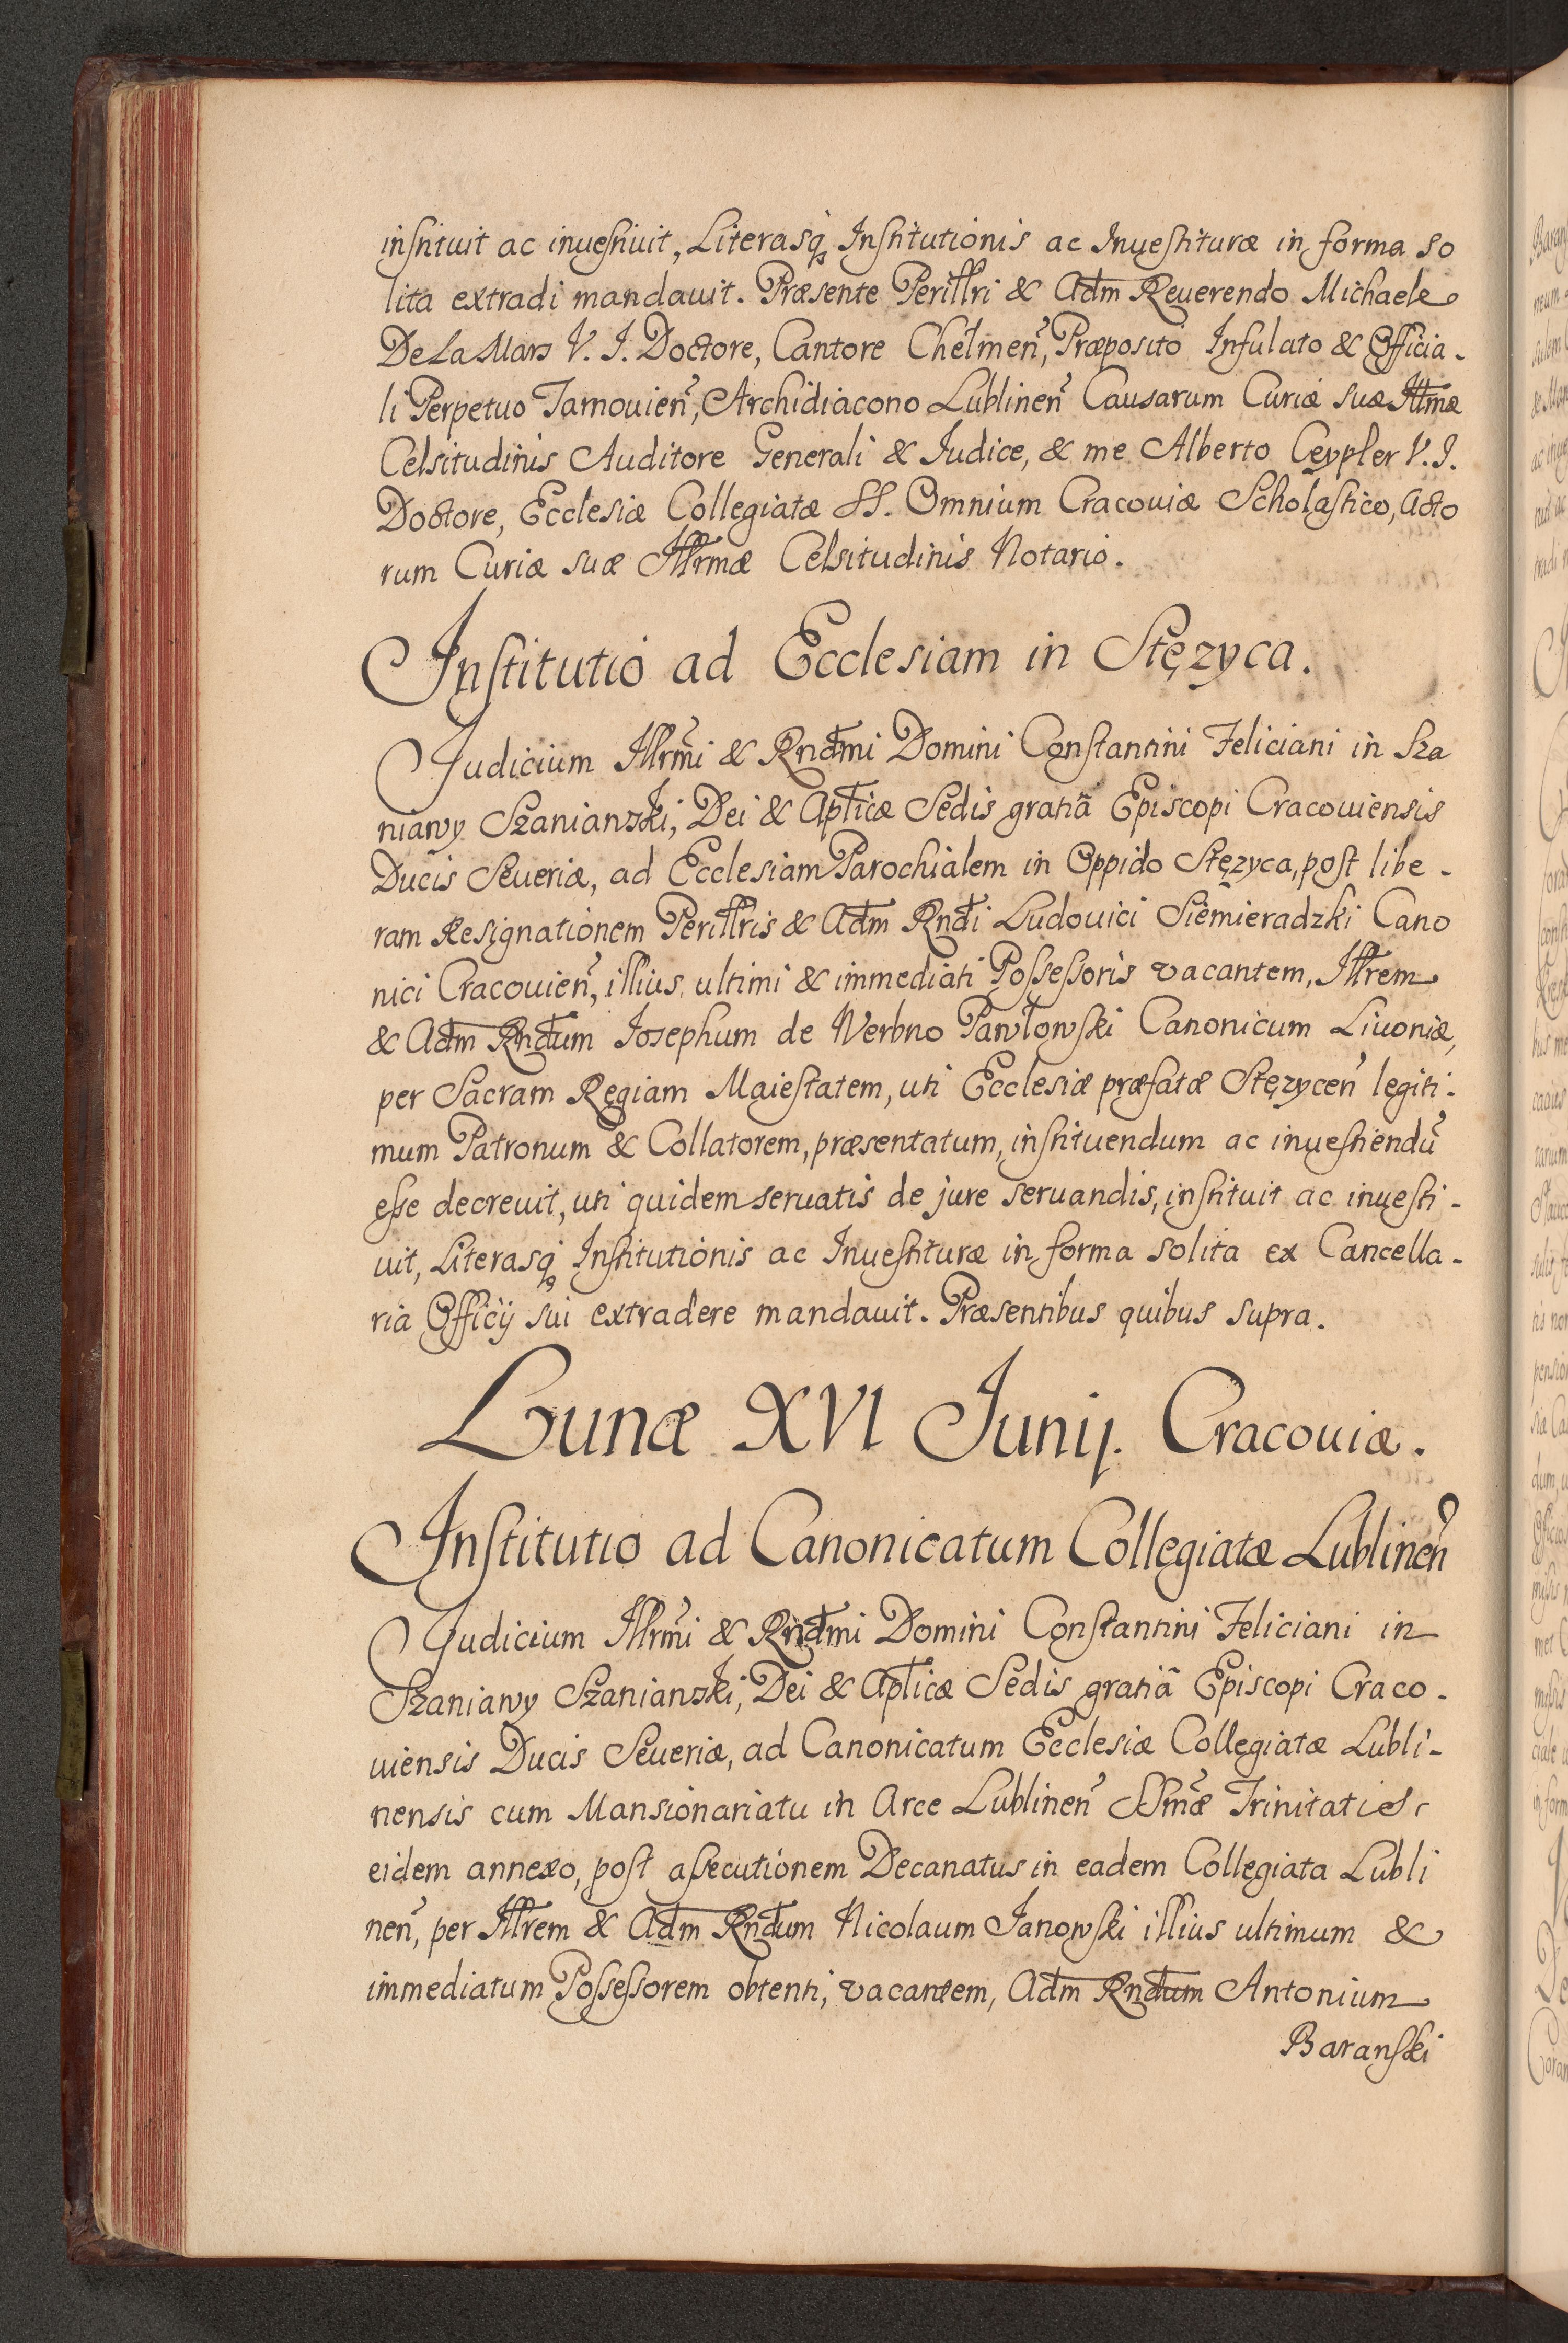 instituit ac inuestiuit, Literasq Institutionis ac Inuestituræ in forma so
lita extradi mandauit. Præsente Perillri & Adm Reuerendo Michaele
De La Mars V. J. Doctore, Cantore Chelmen, Præposito Infulato & Officia-
li Perpetuo Tarnouien, Archidiacono Lublinen Causarum Curiæ suæ Illmæ
Celsitudinis Auditore Generali & Iudice, & me Alberto Ceypler V. J.
Doctore, Ecclesiæ Collegiatæ SS. Omnium Cracouiæ Scholastico, Acto
rum Curiæ suæ Illrmæ Celsitudinis Notario.
Institutio ad Ecclesiam in Stęzyca.
Judicium Illrmi & Rndmi Domini Constantini Feliciani in Sza
niawy Szaniawski, Dei & Aplicæ Sedis gratiâ Episcopi Cracouiensis
Ducis Seueriæ, ad Ecclesiam Parochialem in Oppido Stęzyca, post libe-
ram Resignationem Perillris & Adm Rndi Ludouici Siemieradzki Cano
nici Cracouien, illius ultimi & immediati Possessoris vacantem, Illrem
& Adm Rndum Josephum de Werbno Pawłowski Canonicum Liuoniæ,
per Sacram Regiam Maiestatem, uti Ecclesiæ præfatæ Stęzycen legiti-
mum Patronum & Collatorem, præsentatum, instituendum ac inuestiendũ
esse decreuit, uti quidem seruatis de jure seruandis, instituit ac inuesti-
uit, Literasq Institutionis ac Inuestituræ in forma solita ex Cancella-
ria Officij sui extradere mandauit. Præsentibus quibus supra.
Lunæ XVI Junij. Cracouiæ.
Institutio ad Canonicatum Collegiatæ Lublinen
Judicium Illrmi & Rndmi Domini Constantini Feliciani in
Szaniawy Szaniawski, Dei & Aplicæ Sedis gratiâ Episcopi Craco-
uiensis Ducis Seueriæ, ad Canonicatum Ecclesiæ Collegiatæ Lubli-
nensis cum Mansionariatu in Arce Lublinen SSmæ Trinitatis
eidem annexo, post assecutionem Decanatus in eadem Collegiata Lubli
nen, per Illrem & Adm Rndum Nicolaum Janowski illius ultimum &
immediatum Possessorem obtenti, vacantem, Adm Rndum Antonium
Baranski